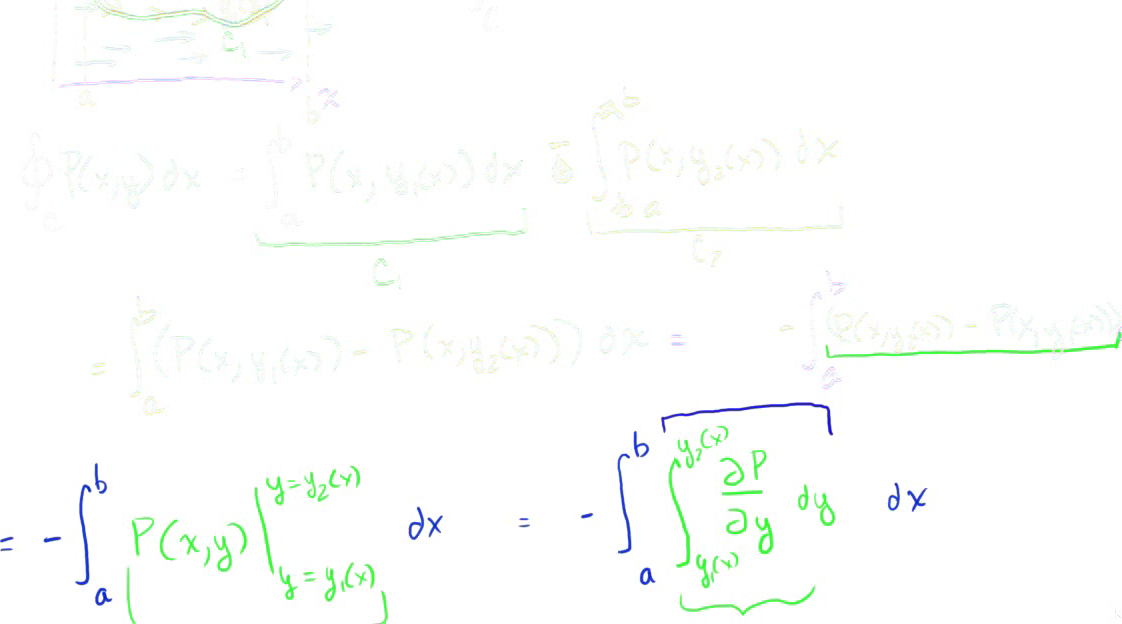 C₁
a b x
∮_C P(x,y) dx = ∫_a^b P(x, y₁(x)) dx - ∫_a^b P(x, y₂(x)) dx
C₁ C₂
= ∫_a^b (P(x, y₁(x)) - P(x, y₂(x))) dx = - ∫_a^b (P(x, y₂(x)) - P(x, y₁(x)))
= - ∫_a^b P(x,y) |_{y = y₁(x)}^{y = y₂(x)} dx = - ∫_a^b ∫_{y₁(x)}^{y₂(x)} ∂P/∂y dy dx